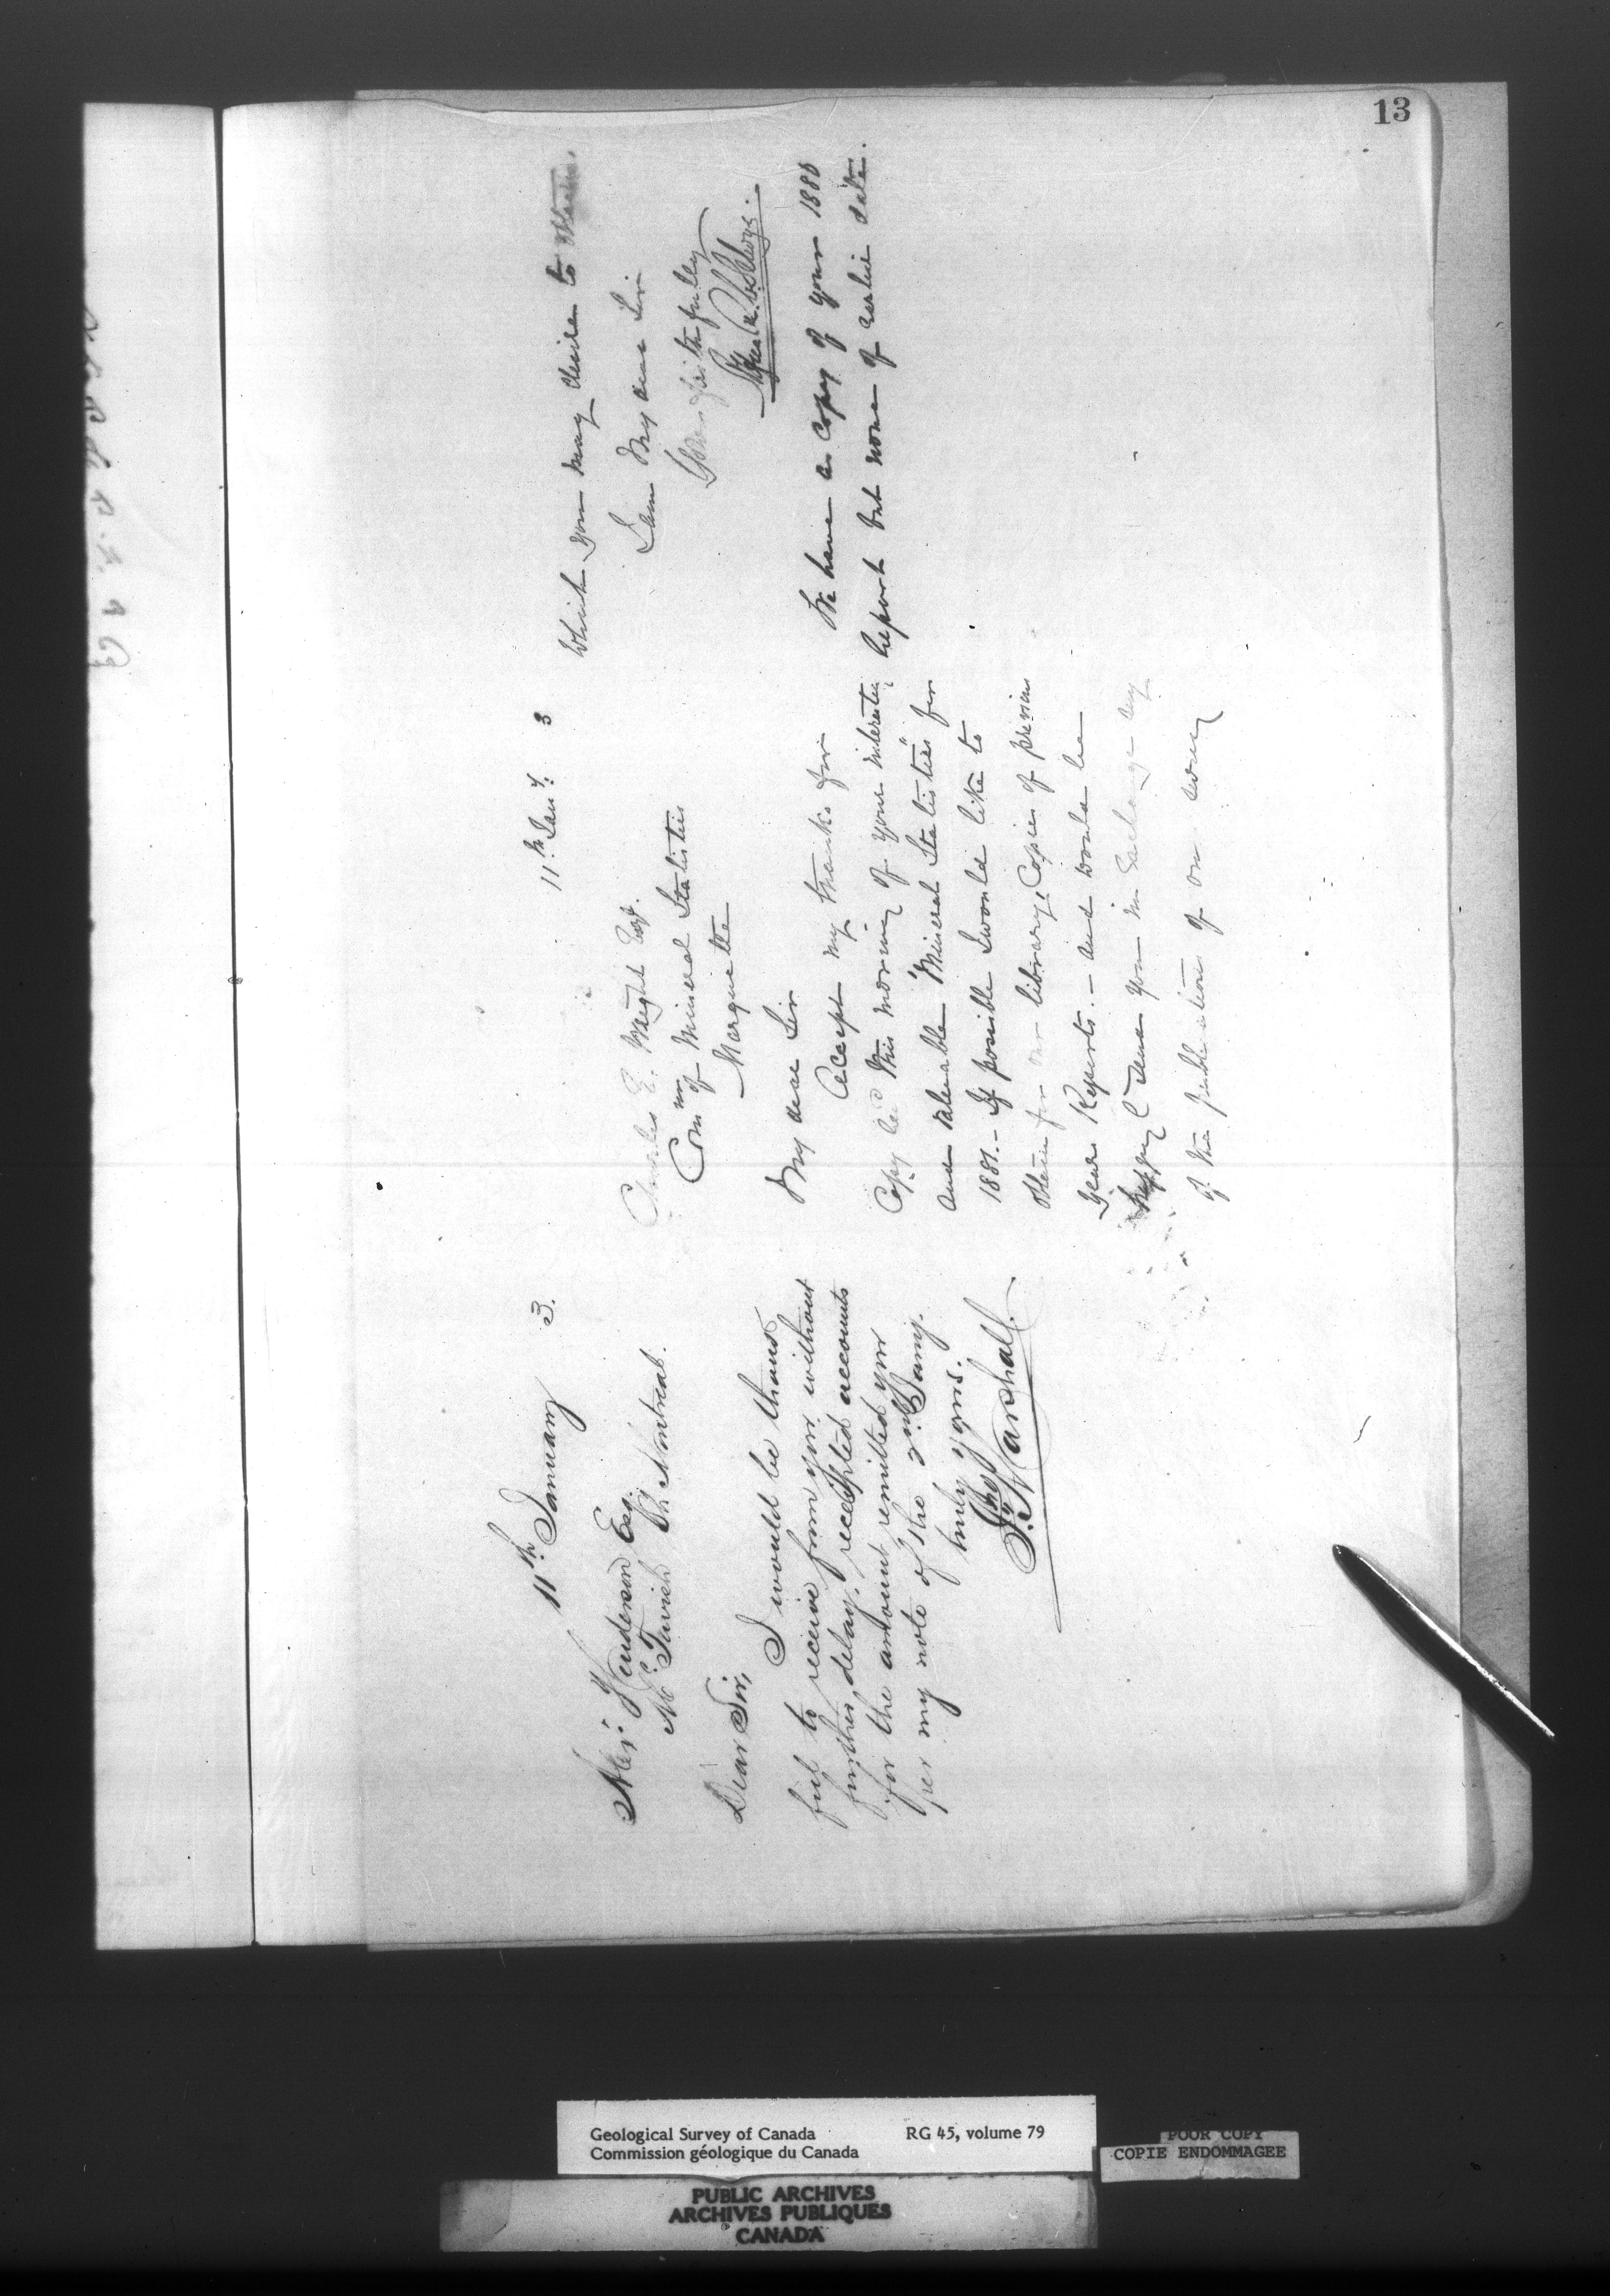 13
11th January 3.
Alex. Henderson Esq.
McTavish St. Montreal.
Dear Sir,
I would be thank
ful to receive from you without
further delay, receipted accounts
for the amount remitted you
per my note of the 2nd Jany.
truly yours.
Jno Marshall.
11th Jany. 3
Charles E. Wright Esq.
Comnr of Mineral Statistics
Marquette
My dear Sir
Accept my thanks for
Copy recd this morning of your interesting
and valuable "Mineral Statistics" for
1881. - If possible I would like to
obtain for our library, Copies of previous
years Reports. - and would be
happy to send you in Exchange any
of the publications of our Survey
which you may desire to obtain.
I am My dear Sir
Yours faithfully
Alfred R. C. Selwyn.
We have a Copy of your 1880
Report but none of earlier date.
Geological Survey of Canada RG 45, volume 79
Commission géologique du Canada
POOR COPY
COPIE ENDOMMAGEE
PUBLIC ARCHIVES
ARCHIVES PUBLIQUES
CANADA